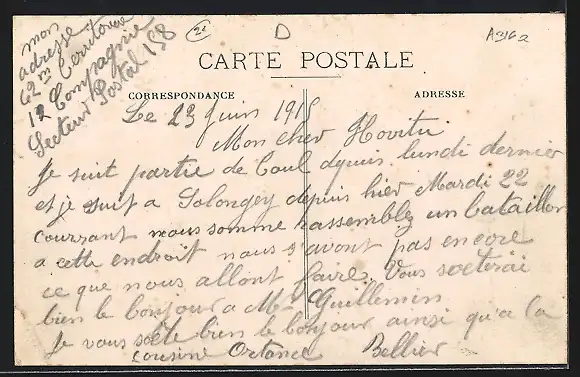 mon
adresse
62m Territorial
12 Compagnie
Secteur Postal 158
D
A3162
CARTE POSTALE
CORRESPONDANCE ADRESSE
Le 23 Juin 1915
Mon cher
Je suit partie de Toul depuis lundi dernier
et je suit a Solongey depuis hier Mardi 22
courrant nous somme rassemblez un bataillon
a cette endroit nous s'avont pas encore
ce que nous allont faire. Vous
bien le bonjour a Mr Guillemin
Je vous bien le bonjour ainsi qu'a la
cousine Ortance Bellier